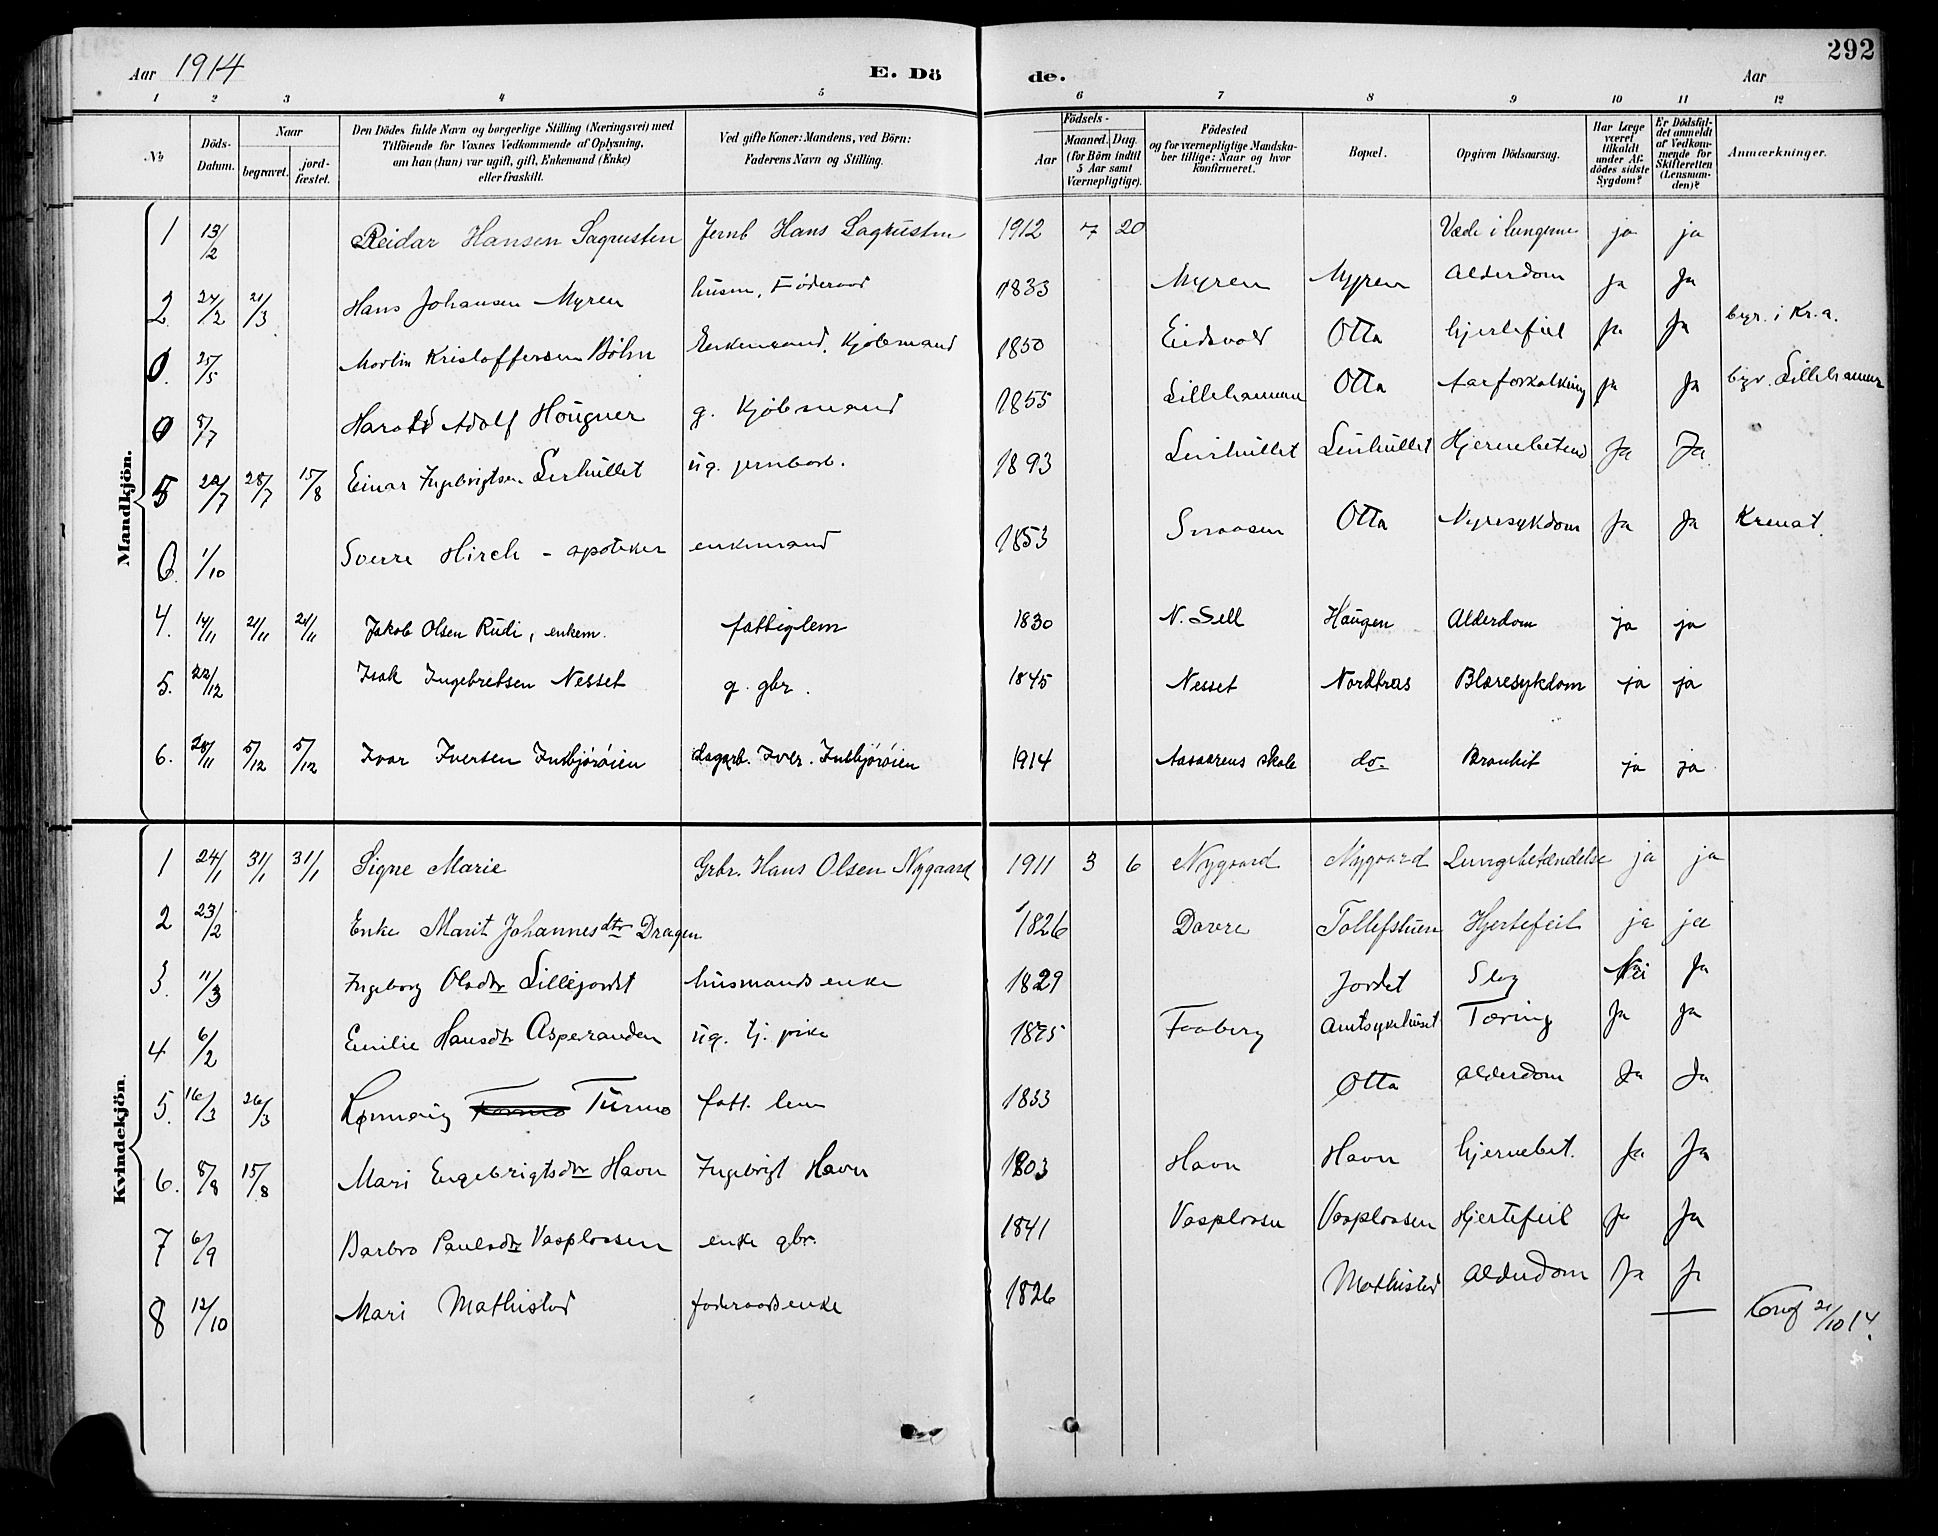 292
Aar 1914 E. Dö de. Aar
1 2 3 4 5 6 7 8 9 10 11 12
No Döds-Datum. Naar begravet. jord-fæstet. Den Dödes fulde Navn og borgerlige Stilling (Næringsvei) med Tilföiende for Voxnes Vedkommende af Oplysning, om han (hun) var ugift, gift, Enkemand (Enke) eller fraskilt. Ved gifte Koner: Mandens, ved Börn: Faderens Navn og Stilling. Födsels- Aar Maaned. Dag. (for Börn indtil 5 Aar samt Værnepligtige). Födested og for værnepligtige Mandskaber tillige: Naar og hvor konfirmeret. Bopæl. Opgiven Dödsaarsag. Har Læge været tilkaldt under Afdödes sidste Sygdom? Er Dödsfaldet anmeldt af Vedkommende for Skifteretten (Lensmanden)? Anmærkninger.
Mandkjön.
1 13/2 Reidar Hansen Sagrusten Jernb Hans Sagrusten 1912 7 20 Væde i lungerne ja ja
2. 24/2 21/3 Hans Johansen Myren husm, Föderaad 1833 Myren Myren Alderdom ja Ja
0. 25/5 Martin Kristoffersen Böhn Enkemand, Kjöbmand 1850 Eidsvold Otta hjertefeil Ja Ja bgr. i Kr.a.
0 8/7 Harald Adolf Hougner g. Kjöbmand 1855 Lillehammer Otta Aarforkalkning ja Ja bgr. Lillehammer
5 22/7 28/7 15/8 Einar Ingebrigtsen Lerhullet ug. jernbarb. 1893 Leirhullet Leirhullet Hjernebetænd Ja Ja.
0. 1/10 Sverre Hirch - apoteker enkemand 1853 Snaasen Otta Nyresykdom Ja Ja Kremat.
4. 14/11 21/11 21/11 Jakob Olsen Rudi, enkem. fattiglem 1830 N. Sell Haugen Alderdom ja ja
5. 22/12 Isak Ingebretsen Nesset g. gbr. 1845 Nesset Nordbras Blæresykdom ja ja
6. 28/11 5/12 5/12 Ivar Iversen Insbjöröien dagarb. Iver. Insbjöröien 1914 Aasaarens skole do Bronkit ja ja
Kvindekjön.
1 24/1 31/1 31/1 Signe Marie Grbr. Hans Olsen Nygaard 1911 3 6 Nygaard Nygaard Lungebetændelse ja ja
2 23/2 Enke Marit Johannesdtr Dragen 1826 Dovre Tollefstuen Hjertefeil ja ja
3. 11/3 Ingeborg Olsdtr Lillejordet husmandsenke 1829 Jordet Slag Nei Ja
4 6/2 Emilie Hansdtr Asperanden ug. tj. pike 1875 Faaberg Amtsykehuset Tæring Ja Ja
5. 16/3 26/3 Rönnaug Formo Turmo fatt. lem 1833 Otta Alderdom Ja Ja
6. 8/8 15/8 Mari Engebrigtsdtr Havn Ingebrigt Havn 1803 Havn Havn hjernebet. Ja Ja
7 6/9 Barbro Paulsdtr Vasplassen enke gbr. 1841 Vasplassen Vasplassen Hjertefeil Ja Ja
8 12/10 Mari Mathistad föderaadsenke 1826 Mathistad Alderdom Ja Ja
Konf 21/10 14.